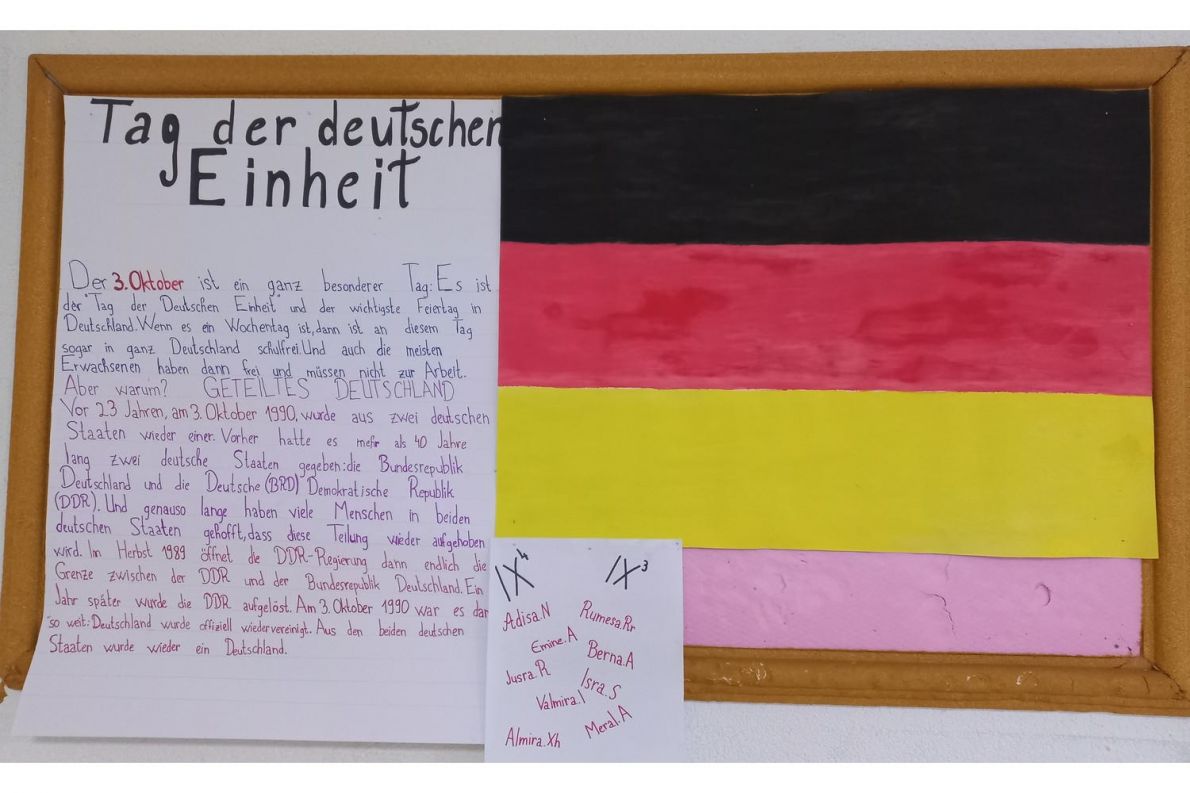 Tag der deutschen
Einheit
Der 3. Oktober ist ein ganz besonderer Tag: Es ist
der "Tag der Deutschen Einheit" und der wichtigste Feiertag in
Deutschland. Wenn es ein Wochentag ist, dann ist an diesem Tag
sogar in ganz Deutschland schulfrei. Und auch die meisten
Erwachsenen haben dann frei und müssen nicht zur Arbeit.
Aber warum? GETEILTES DEUTSCHLAND
Vor 23 Jahren, am 3. Oktober 1990, wurde aus zwei deutschen
Staaten wieder einer. Vorher hatte es mehr als 40 Jahre
lang zwei deutsche Staaten gegeben: die Bundesrepublik
Deutschland und die Deutsche (BRD) Demokratische Republik
(DDR). Und genauso lange haben viele Menschen in beiden
deutschen Staaten gehofft, dass diese Teilung wieder aufgehoben
wird. Im Herbst 1989 öffnet die DDR-Regierung dann endlich die
Grenze zwischen der DDR und der Bundesrepublik Deutschland. Ein
Jahr später wurde die DDR aufgelöst. Am 3. Oktober 1990 war es dar
so weit: Deutschland wurde offiziell wiedervereinigt. Aus den beiden deutschen
Staaten wurde wieder ein Deutschland.
IX4
Adisa.N
Emine.A
Jusra.R
Valmira.I
Almira.Xh
IX3
Rumesa.Rr
Berna.A
Isra.S
Meral.A